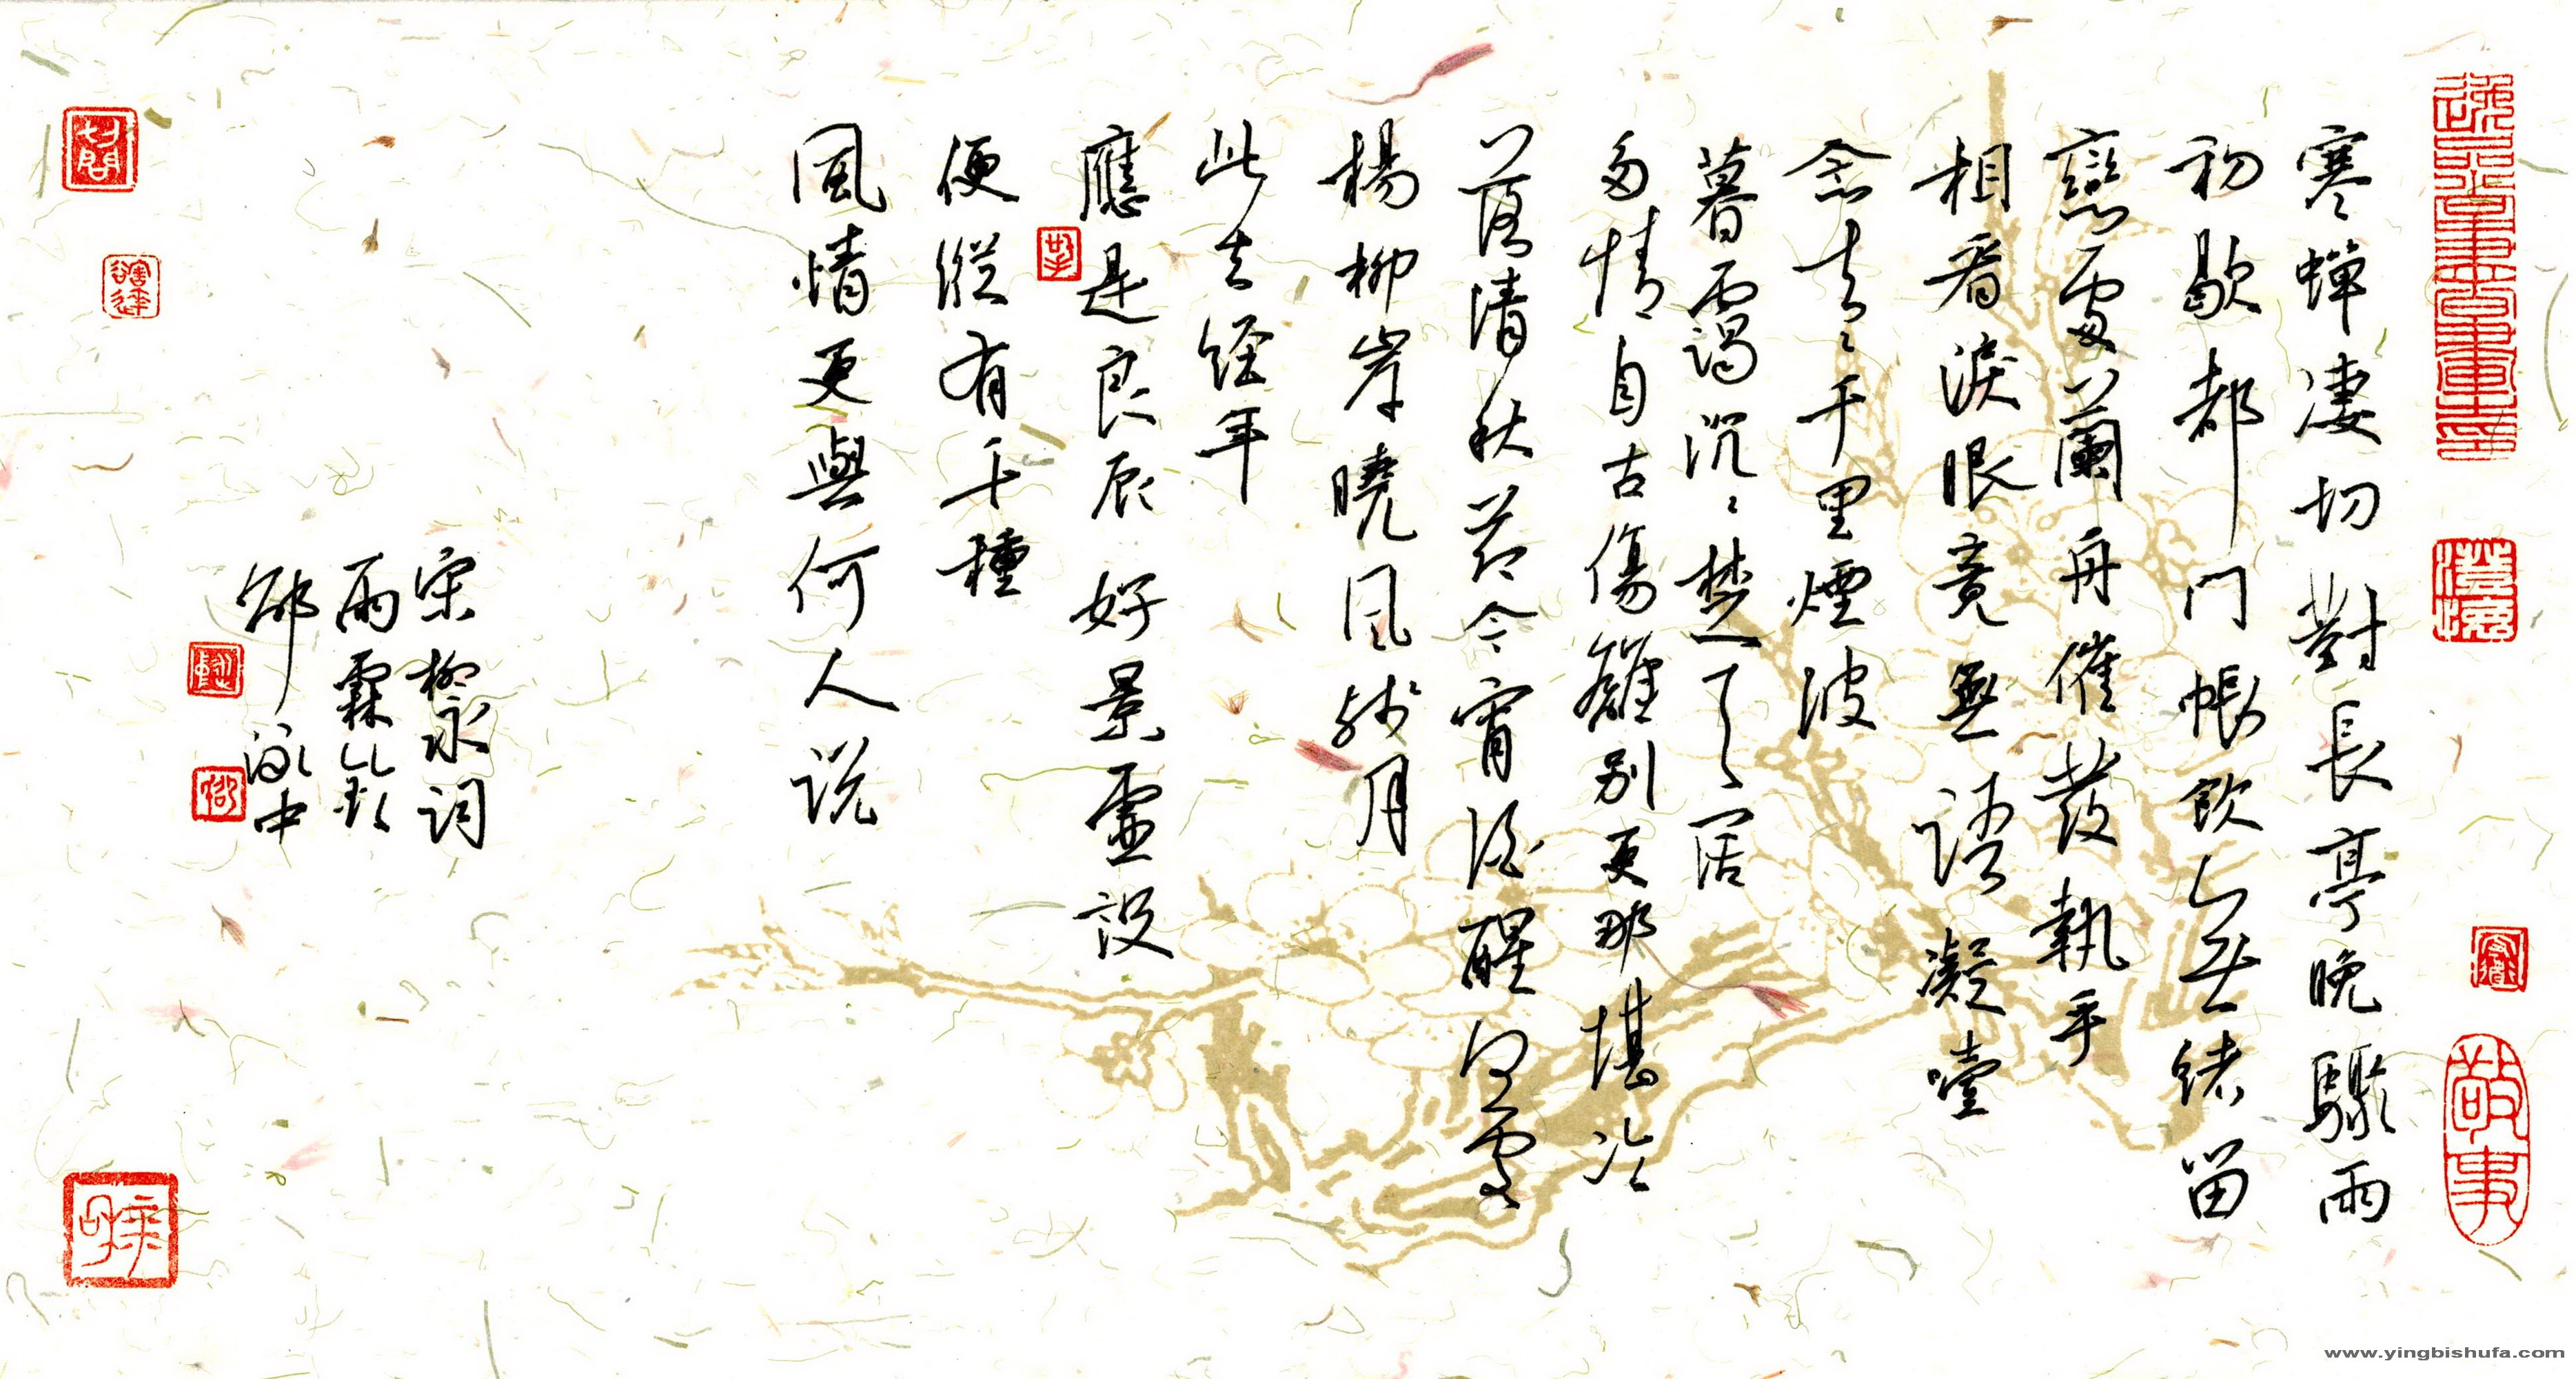 寒蝉凄切對長亭晚驟雨
初歇都门帳飲无緒留
戀處蘭舟催發執手
相看淚眼竟無語凝噎
念去々千里煙波
暮靄沉々楚天闊
多情自古傷離別更那堪冷
落清秋節今宵酒醒何處
楊柳岸曉風殘月
此去經年
應是良辰好景虛設
便縱有千種
風情更與何人説
宋柳永詞
雨霖鈴
泳中
澄懷
敬事
www.yingbishufa.com